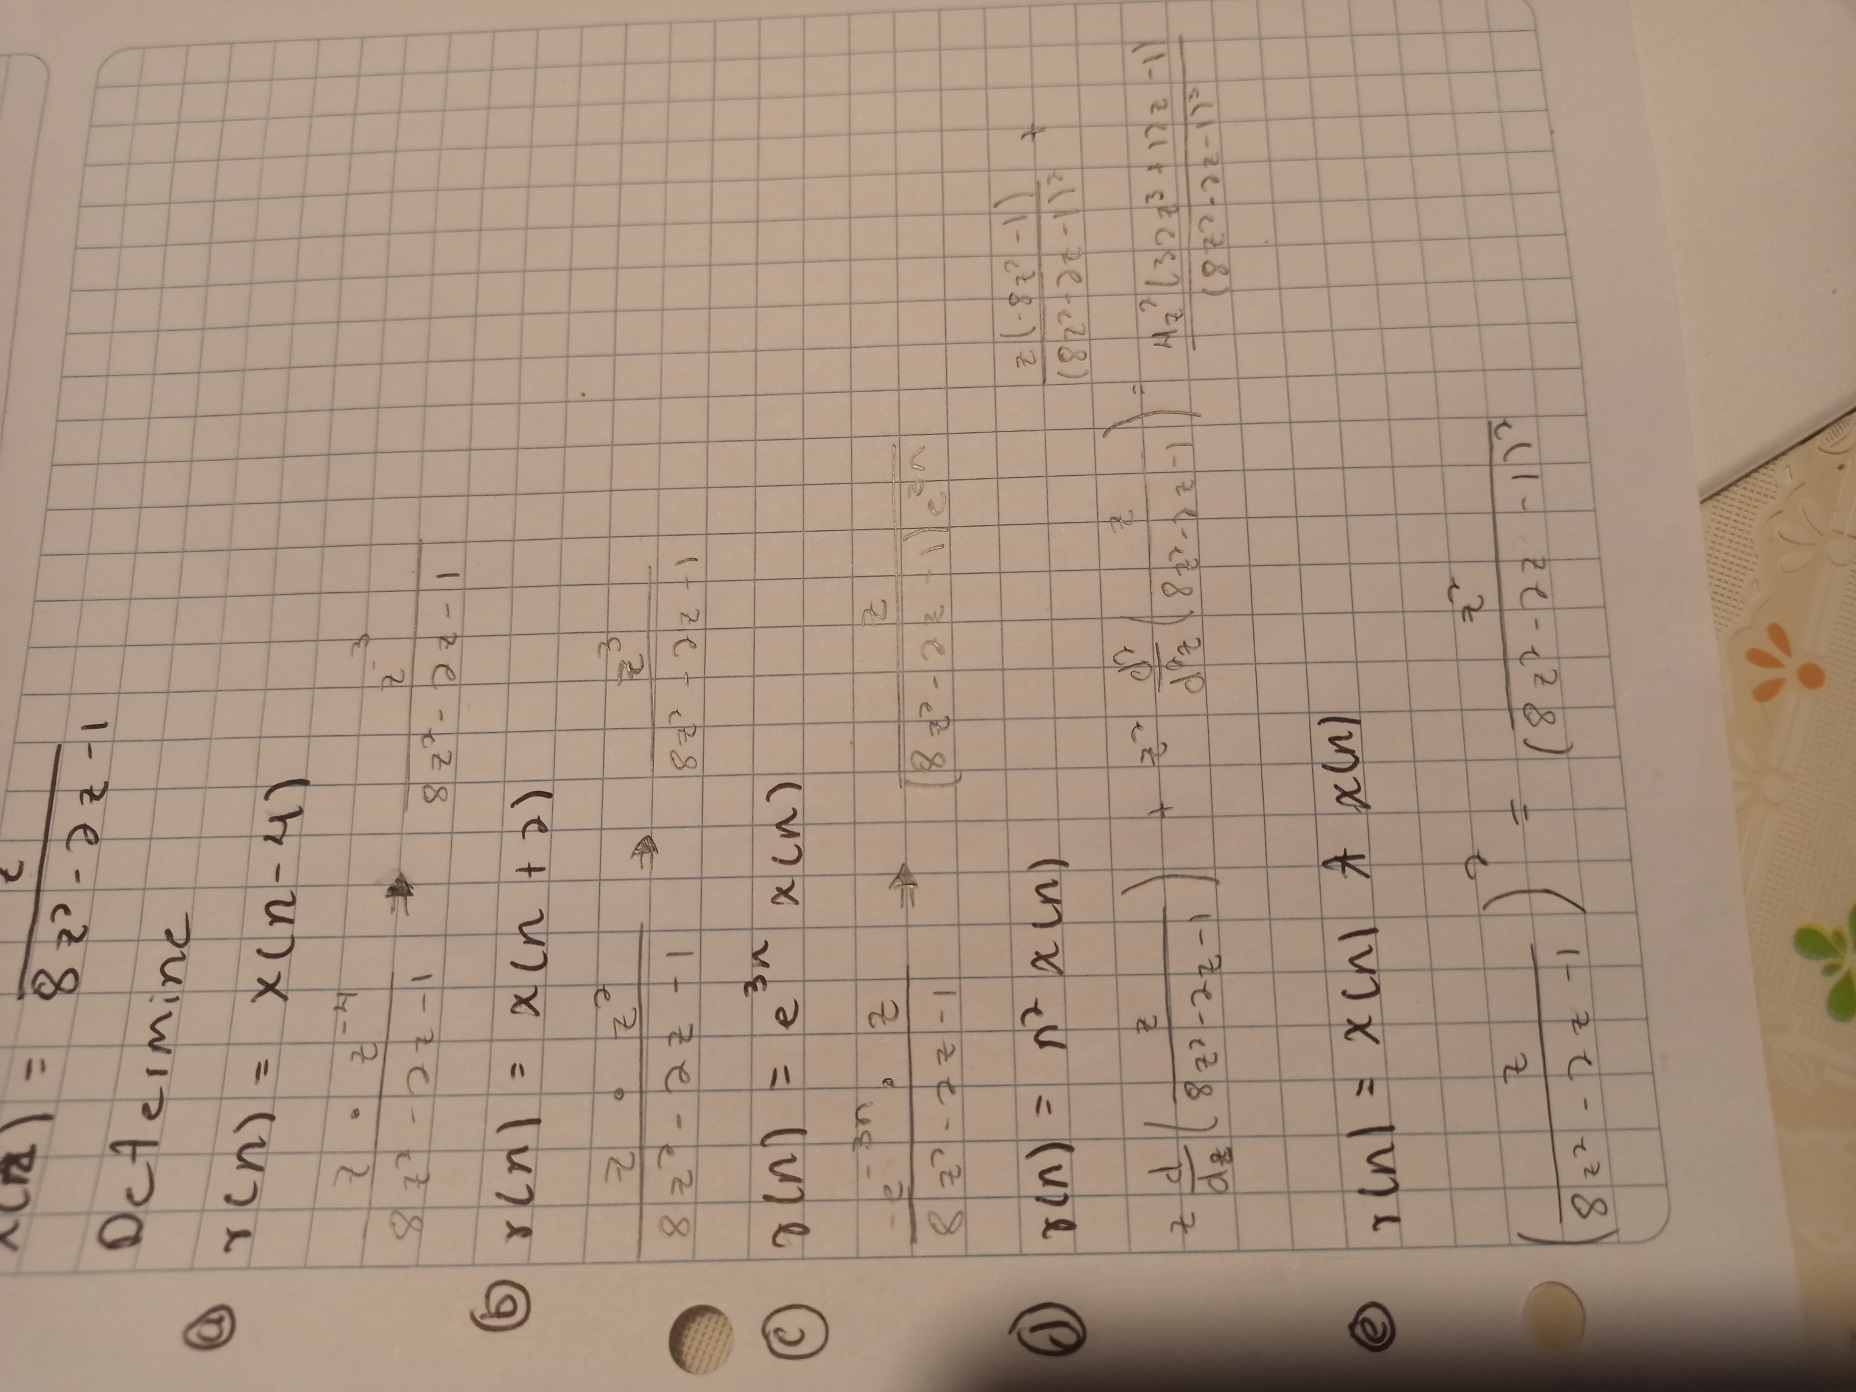 x(n) = z / 8z² - 2z - 1
Determine
a r(n) = x(n-4)
z · z⁻⁴ / 8z² - 2z - 1 → z⁻³ / 8z² - 2z - 1
b r(n) = x(n+2)
z · z² / 8z² - 2z - 1 → z³ / 8z² - 2z + 1
c r(n) = e³ⁿ x(n)
e⁻³ⁿ · z / 8z² - 2z - 1 ⇒ z / (8z² - 2z - 1) e³ⁿ
d r(n) = n² x(n)
z d/dz ( z / 8z² - 2z - 1 ) + z² d²/dz² ( z / 8z² - 2z - 1 ) = z(-8z² - 1) / (8z² - 2z - 1)² + 4z² (32z³ + 12z - 1) / (8z² - 2z - 1)³
e r(n) = x(n) * x(n)
( z / 8z² - 2z - 1 )² = z² / (8z² - 2z - 1)²